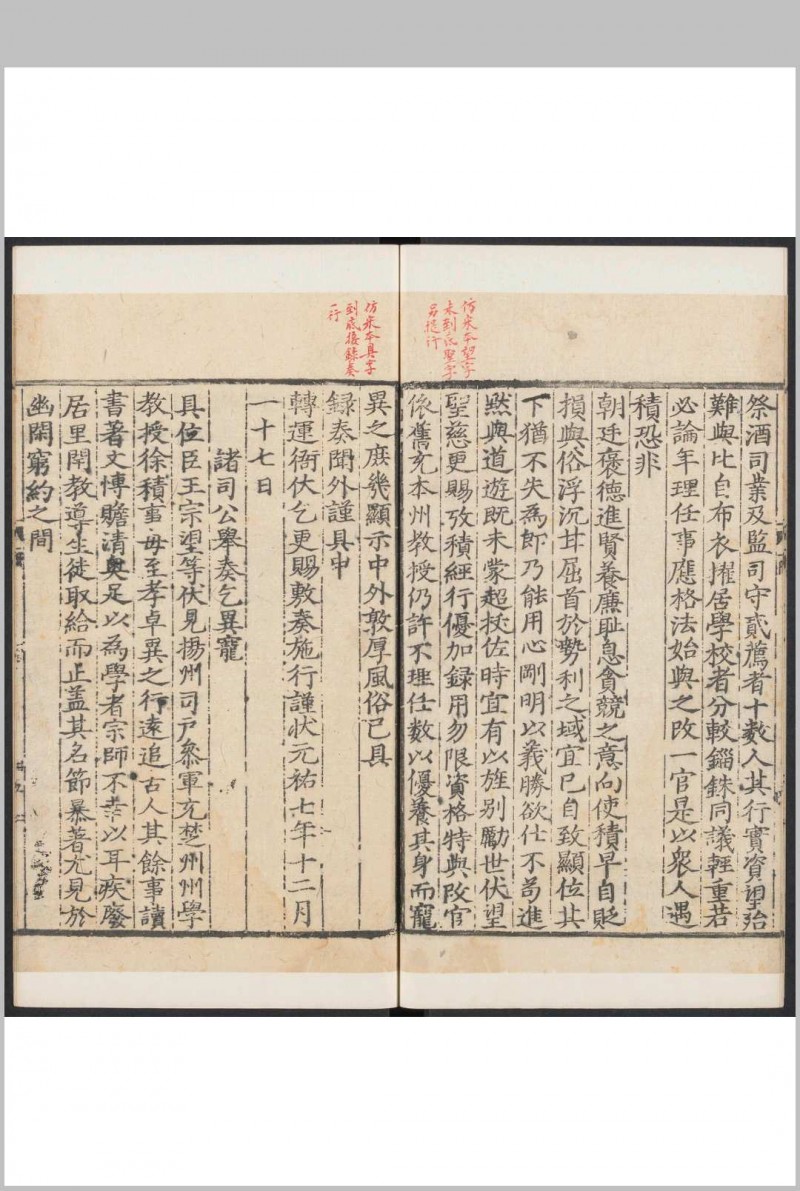 仿宋本望字
未到底聖字
另提行
祭酒司業及監司守貳薦者十數人其行實資望殆
難與比自布衣擢居學校者分較錙銖同議輕重若
必論年理任事應格法始與之改一官是以衆人遇
積恐非
朝廷襃德進賢養廉恥息貪競之意向使積早自貶
損與俗浮沉甘屈首於勢利之域宜已自致顯位其
下猶不失為郎乃能用心剛明以義勝欲仕不苟進
默與道遊既未蒙超抆佐時宜有以旌别勵世伏望
聖慈更賜攷積經行優加録用勿限資格特與改官
依舊充本州教授仍許不理任數以優養其身而寵
仿宋本具字
到底接錄奏
一行
異之庶幾顯示中外敦厚風俗已具
録奏聞外謹具申
轉運衙伏乞更賜敷奏施行謹狀元祐七年十二月
一十七日
諸司公舉奏乞異寵
具位臣王宗望等伏見揚州司户叅軍充楚州州學
教授徐積事毋至孝卓異之行逺追古人其餘事讀
書著文愽贍清奥足以為學者宗師不幸以耳疾廢
居里閈教導生徒取給而止盖其名節暴著尤見於
幽閑窮約之間